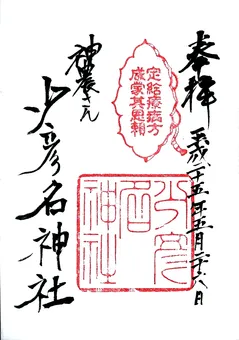 奉拝
平成二十五年五月二十八日
定給療病方
咸蒙其恩頼
神農さん
少彦名神社
少彦
名
神社